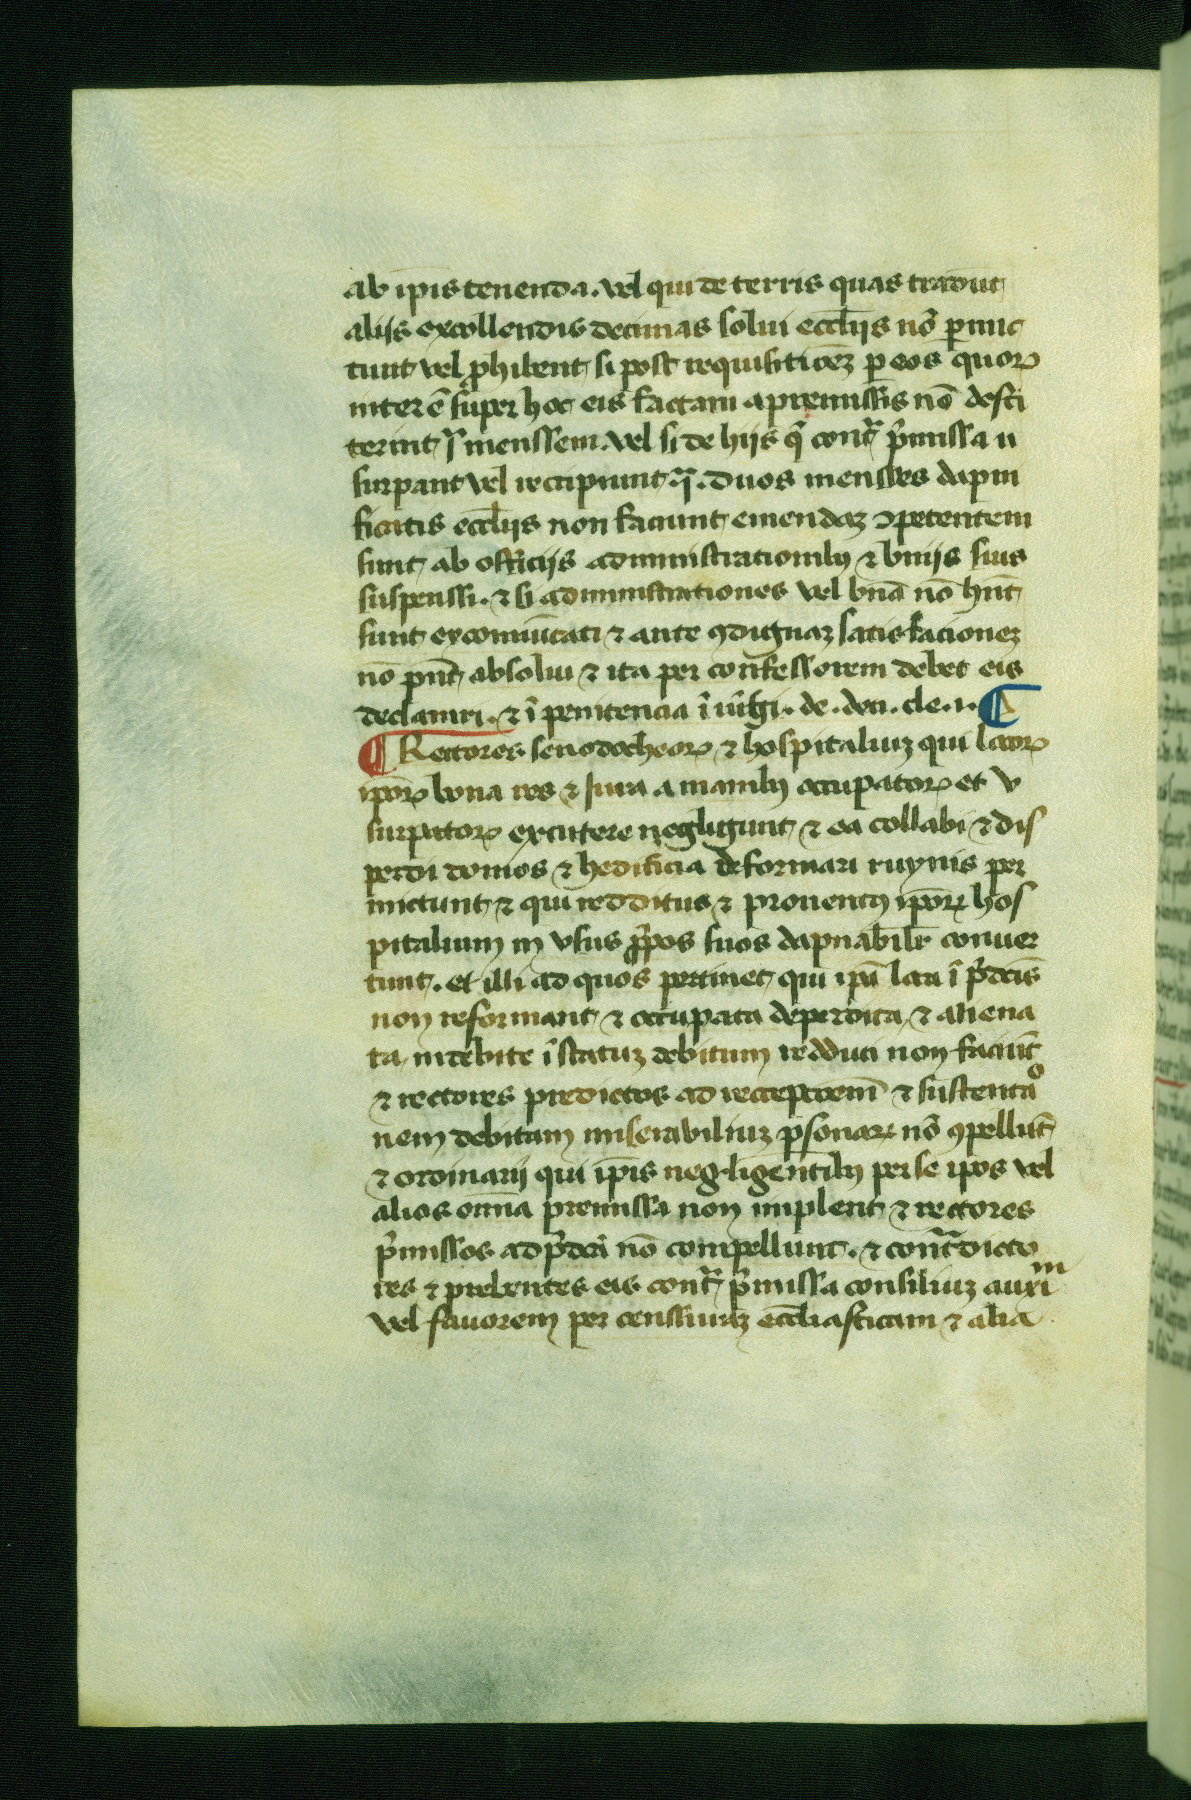 ab ip̄is tenenda. vel qui de terris quas tradūt
alijs excollendis decimas solui eccl̄ijs nō ꝑmic
tunt vel ꝓhibent si post requisitiōeꝫ ꝑ eos quoꝝ
interē suꝑ hoc eis factam a premissis nō desti
terint ī menssem. vel si de hijs q̄ contᷓ p̄missa u
surpant vel recipiunt ī. duos mensses dapni
ficatis eccl̄ijs non faciunt emendaꝫ ↄpetentem
sunt ab officijs administrationibꝰ ⁊ bn̄ijs suis
suspenssi. ⁊ si administrationes vel bn̄a nō hn̄t
sunt excomūicati ⁊ ante ꝯdignaꝫ satisfacioneꝫ
nō pn̄t absolui ⁊ ita per confessorem debet eis
declarari. ⁊ ī penitencia īiūgi. de. deci. cle. 1.
¶ Rectores senodocheoꝝ ⁊ hospitaliuꝫ qui locoꝝ
ip̄oꝝ bona res ⁊ iura a manibꝰ occupatoꝝ et v
surpatoꝝ excutere negligunt ⁊ ea collabi ⁊ dis
perdi domos ⁊ hedificia deformari ruynis per
mictunt ⁊ qui redditus ⁊ prouentꝰ ip̄oꝝ hos
pitalium in vsus ꝓpos suos dapnabilr̄ conuer
tunt. et illi ad quos pertinet qui ip̄a loca ī p̄dcīs
non reformant ⁊ occupata deperdita ⁊ aliena
ta indebite ī statuꝫ debitum redduci non faciūt
⁊ rectores predictos ad recceptōem̄ ⁊ sustentaᵒ
nem debitam miserabiliuꝫ ꝑsonaꝝ nō ꝯpellūt
⁊ ordinarij qui ip̄is negligentibꝰ per se ip̄os vel
alios om̄ia premissa non implent ⁊ rectores
p̄missos ad p̄dcā nō compellunt. ⁊ contᷓdicto
res ⁊ prebentes eis contᷓ p̄missa consiliuꝫ auxiᵐ
vel fauorem per censsuraꝫ eccl̄iasticam ⁊ alia